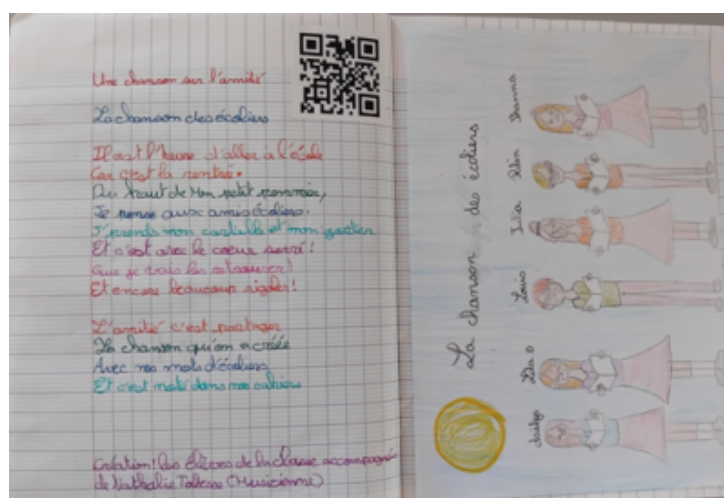 Une chanson sur l'amitié
La chanson des écoliers
Il est l'heure d'aller à l'école
Car c'est la rentrée.
Du haut de mon petit pommier,
Je pense aux amis écoliers.
J'prends mon cartable et mon goûter
Et c'est avec le coeur serré!
Que je vais les retrouver!
Et encore beaucoup rigoler!
L'amitié c'est partager
La chanson qu'on a créée
Avec nos mots d'écoliers
Et c'est noté dans nos cahiers
Création: les élèves de la classe accompagnés
de Nathalie (Musicienne)
La chanson des écoliers
Louis